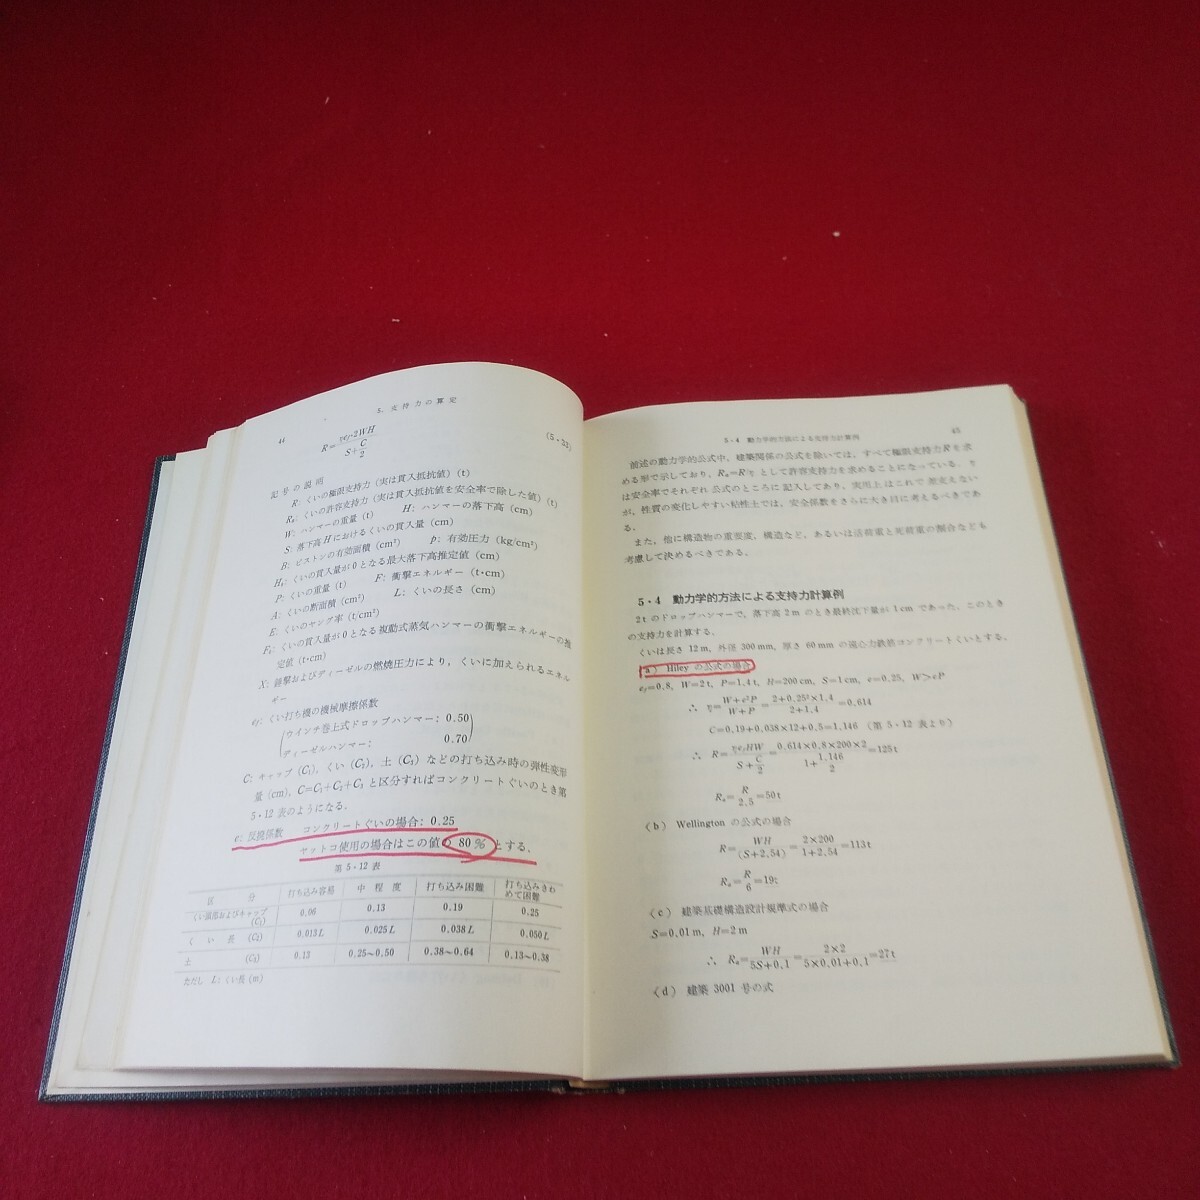 44
5. 支持力の算定
R=ηe_f·2WH/(S+C/2) (5・33)
記号の説明
R: くいの極限支持力（実は貫入抵抗値）(t)
R_a: くいの許容支持力（実は貫入抵抗値を安全率で除した値）(t)
W: ハンマーの重量 (t) H: ハンマーの落下高 (cm)
S: 落下高Hにおけるくいの貫入量 (cm)
B: ピストンの有効面積 (cm²) p: 有効圧力 (kg/cm²)
くいの貫入量が0となる最大落下高推定値 (cm)
P: くいの重量 (t) F: 衝撃エネルギー (t·cm)
A: くいの断面積 (cm²) L: くいの長さ (cm)
E: くいのヤング率 (t/cm²)
くいの貫入量が0となる複動式蒸気ハンマーの衝撃エネルギーの推
定値 (t·cm)
X: 衝撃およびディーゼルの燃焼圧力により，くいに加えられるエネル
ギー
e_f: くい打ち機の機械摩擦係数
(ウインチ巻上式ドロップハンマー: 0.50
ディーゼルハンマー: 0.70)
C: キャップ (C₁)，くい (C₂)，土 (C₃) などの打ち込み時の弾性変形
量 (cm)，C=C₁+C₂+C₃ と区分すればコンクリートぐいのとき第
5・12 表のようになる．
e: 反撥係数 コンクリートぐいの場合: 0.25
ヤットコ使用の場合はこの値の 80% とする．
第 5・12 表
区 分 打ち込み容易 中程度 打ち込み困難 打ち込みきわめて困難
くい頭部およびキャップ (C₁) 0.06 0.13 0.19 0.25
くい長 (C₂) 0.013L 0.025L 0.038L 0.050L
土 (C₃) 0.13 0.25〜0.50 0.38〜0.64 0.13〜0.38
ただし L: くい長 (m)
5・4 動力学的方法による支持力計算例
45
前述の動力学的公式中，建築関係の公式を除いては，すべて極限支持力Rを求
める形で示しており，R_a=R/γ として許容支持力を求めることになっている．γ
は安全率でそれぞれ公式のところに記入してあり，実用上はこれで差支えない
が，性質の変化しやすい粘性土では，安全係数をさらに大き目に考えるべきであ
る．
また，他に構造物の重要度，構造など，あるいは活荷重と死荷重の割合なども
考慮して決めるべきである．
5・4 動力学的方法による支持力計算例
2t のドロップハンマーで，落下高 2m のとき最終沈下量が 1cm であった．このとき
の支持力を計算する．
くいは長さ 12m，外径 300mm，厚さ 60mm の遠心力鉄筋コンクリートくいとする．
(a) Hiley の公式の場合
e_f=0.8, W=2t, P=1.4t, H=200cm, S=1cm, e=0.25, W>eP
∴ η=(W+e²P)/(W+P)=(2+0.25²×1.4)/(2+1.4)=0.614
C=0.19+0.038×12+0.5=1.146 (第 5・12 表より)
∴ R=ηe_fHW/(S+C/2)=0.614×0.8×200×2/(1+1.146/2)=125t
R_a=R/2.5=50t
(b) Wellington の公式の場合
R=WH/(S+2.54)=2×200/(1+2.54)=113t
R_a=R/6=19t
(c) 建築基礎構造設計規準式の場合
S=0.01m, H=2m
∴ R_a=WH/(5S+0.1)=2×2/(5×0.01+0.1)=27t
(d) 建築 3001 号の式